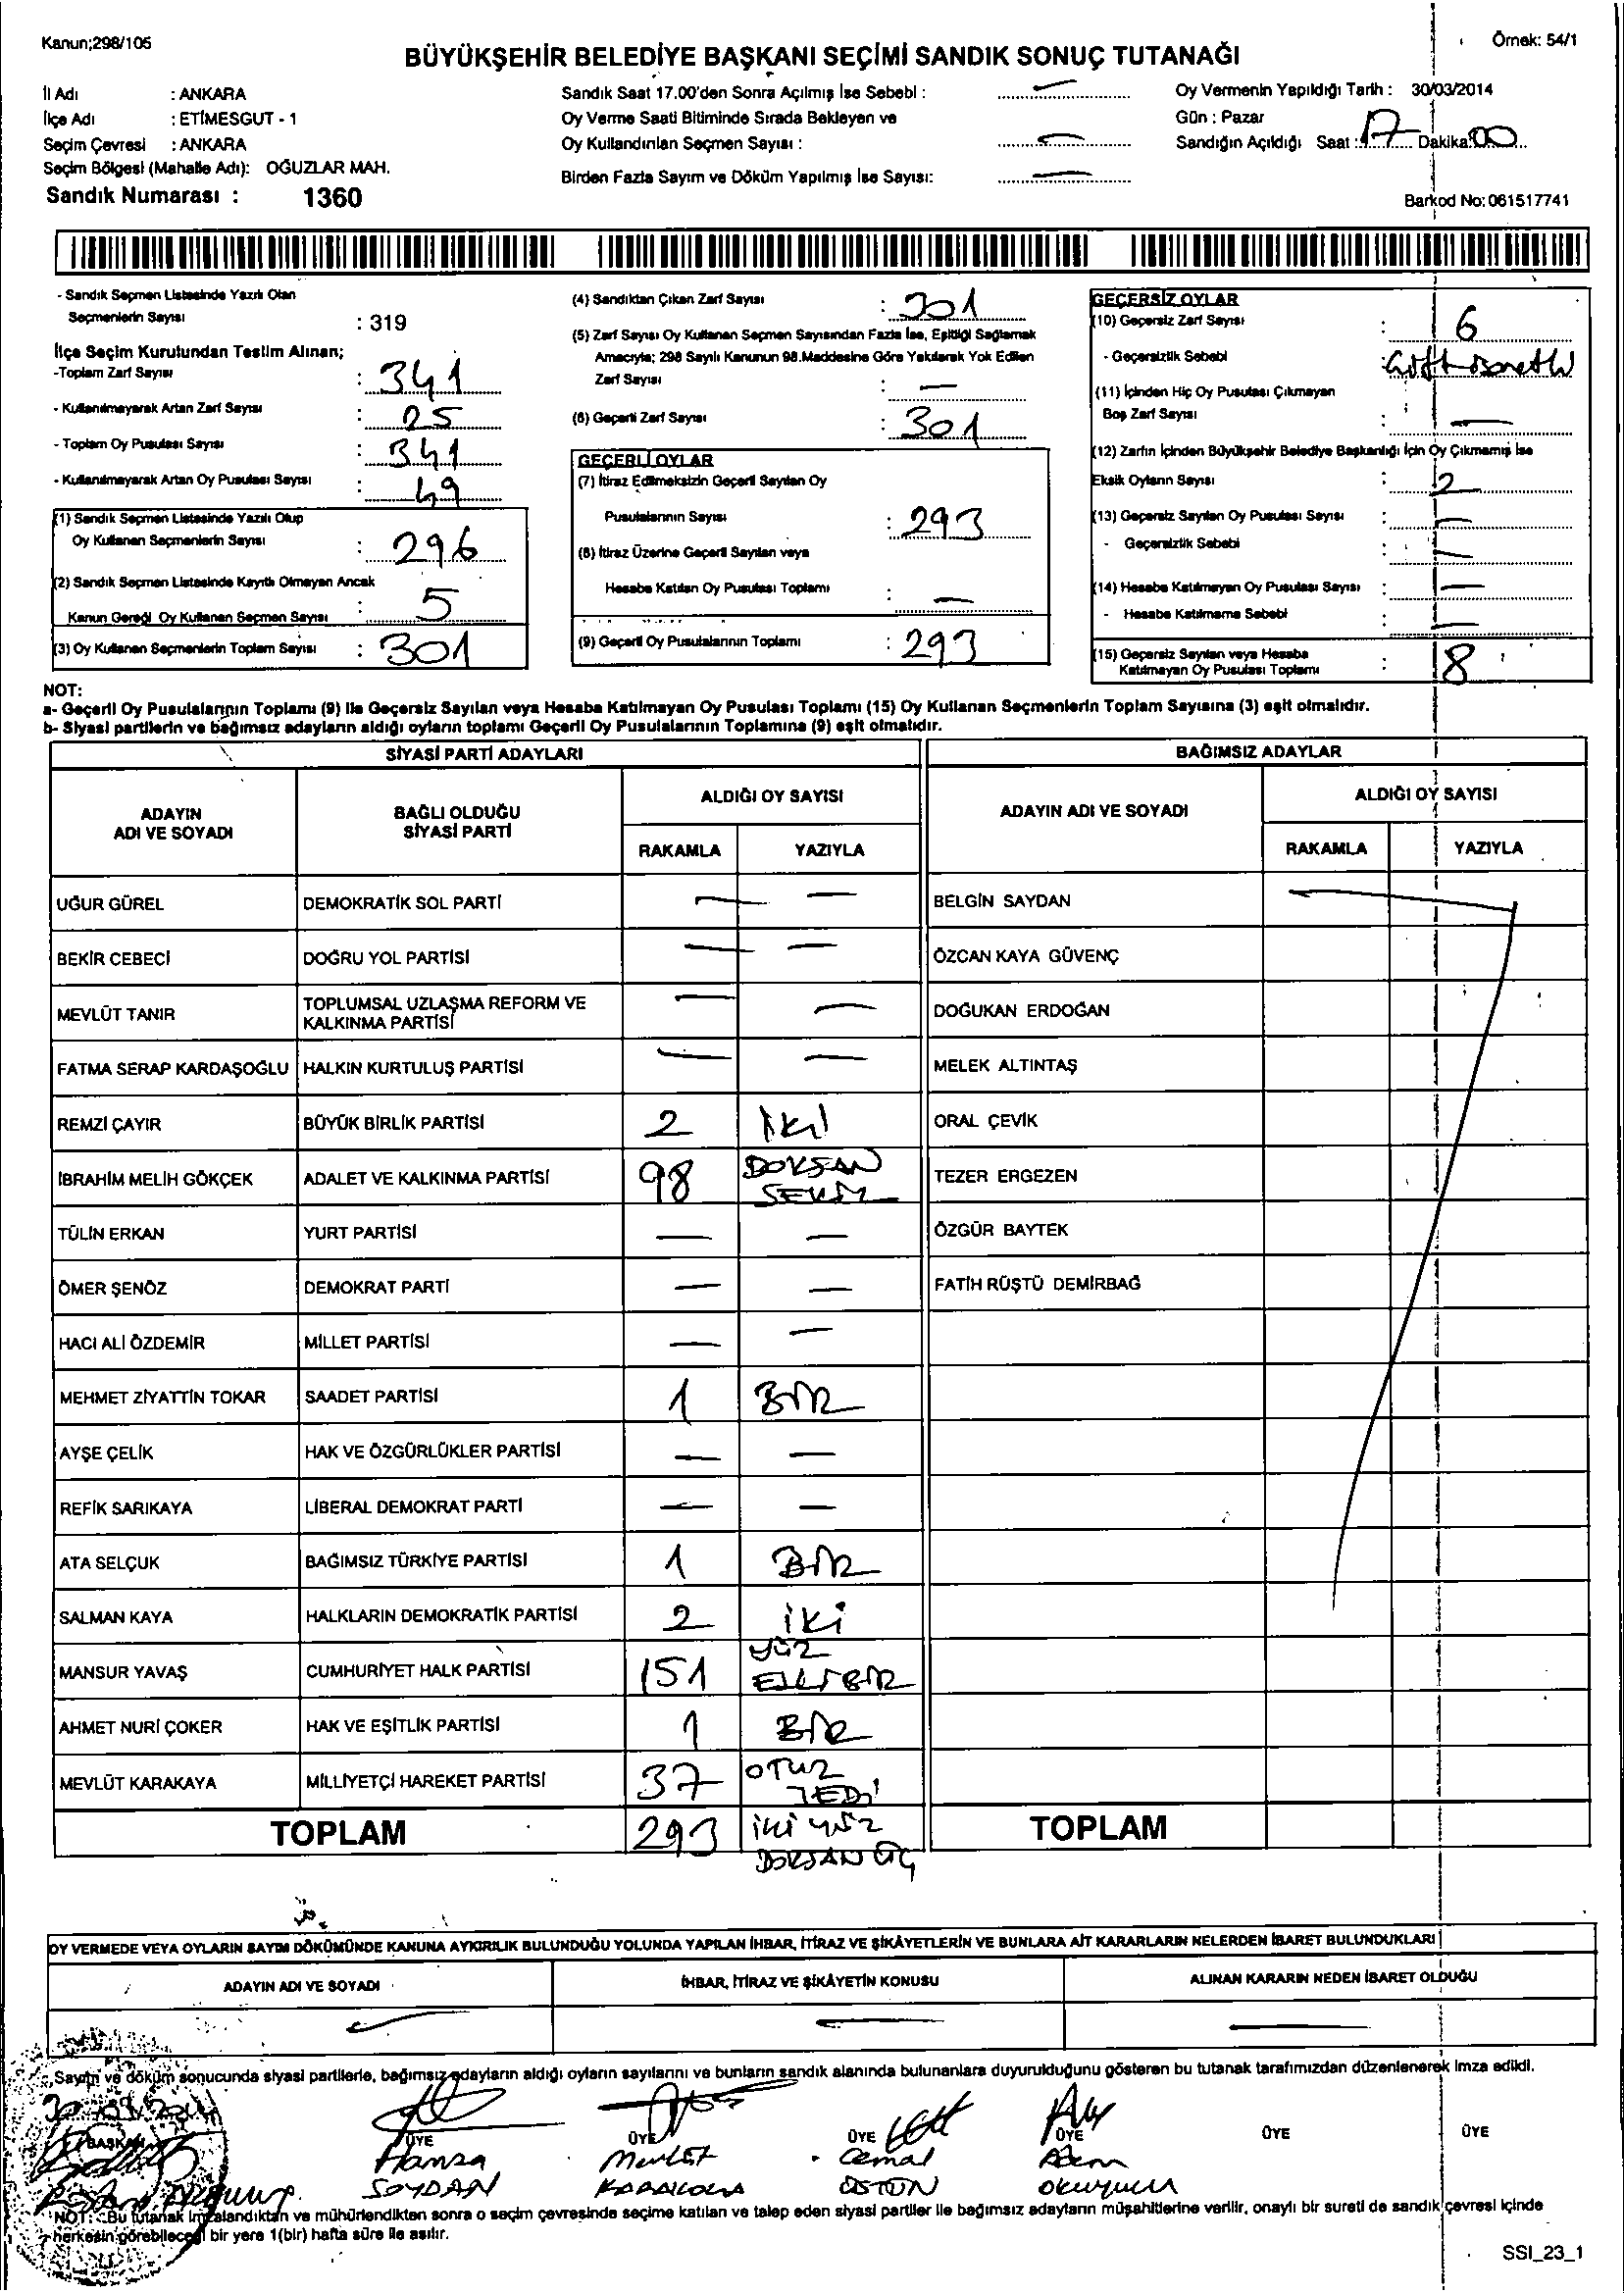 Kanun;298/105
Örnek: 54/1
BÜYÜKŞEHİR BELEDİYE BAŞKANI SEÇİMİ SANDIK SONUÇ TUTANAĞI
İl Adı : ANKARA
İlçe Adı : ETİMESGUT - 1
Seçim Çevresi : ANKARA
Seçim Bölgesi (Mahalle Adı): OĞUZLAR MAH.
Sandık Numarası : 1360
Sandık Saat 17.00'den Sonra Açılmış İse Sebebi :
Oy Verme Saati Bitiminde Sırada Bekleyen ve
Oy Kullandırılan Seçmen Sayısı :
Birden Fazla Sayım ve Döküm Yapılmış İse Sayısı:
Oy Vermenin Yapıldığı Tarih : 30/03/2014
Gün : Pazar
Sandığın Açıldığı Saat : 17 Dakika: 00
Barkod No: 061517741
- Sandık Seçmen Listesinde Yazılı Olan
Seçmenlerin Sayısı : 319
İlçe Seçim Kurulundan Teslim Alınan;
-Toplam Zarf Sayısı : 341
- Kullanılmayarak Artan Zarf Sayısı : 25
- Toplam Oy Pusulası Sayısı : 341
- Kullanılmayarak Artan Oy Pusulası Sayısı : 49
(1) Sandık Seçmen Listesinde Yazılı Olup
Oy Kullanan Seçmenlerin Sayısı : 296
(2) Sandık Seçmen Listesinde Kayıtlı Olmayan Ancak
Kanun Gereği Oy Kullanan Seçmen Sayısı : 5
(3) Oy Kullanan Seçmenlerin Toplam Sayısı : 301
(4) Sandıktan Çıkan Zarf Sayısı : 301
(5) Zarf Sayısı Oy Kullanan Seçmen Sayısından Fazla İse, Eşitliği Sağlamak
Amacıyla; 298 Sayılı Kanunun 98.Maddesine Göre Yakılarak Yok Edilen
Zarf Sayısı : —
(6) Geçerli Zarf Sayısı : 301
GEÇERLİ OYLAR
(7) İtiraz Edilmeksizin Geçerli Sayılan Oy
Pusulalarının Sayısı : 293
(8) İtiraz Üzerine Geçerli Sayılan veya
Hesaba Katılan Oy Pusulası Toplamı : —
(9) Geçerli Oy Pusulalarının Toplamı : 293
GEÇERSİZ OYLAR
(10) Geçersiz Zarf Sayısı : 6
- Geçersizlik Sebebi :
(11) İçinden Hiç Oy Pusulası Çıkmayan
Boş Zarf Sayısı : —
(12) Zarfın İçinden Büyükşehir Belediye Başkanlığı İçin Oy Çıkmamış İse
Eksik Oyların Sayısı : 2
(13) Geçersiz Sayılan Oy Pusulası Sayısı : —
- Geçersizlik Sebebi : —
(14) Hesaba Katılmayan Oy Pusulası Sayısı : —
- Hesaba Katılmama Sebebi : —
(15) Geçersiz Sayılan veya Hesaba
Katılmayan Oy Pusulası Toplamı : 8
NOT:
a- Geçerli Oy Pusulalarının Toplamı (9) ile Geçersiz Sayılan veya Hesaba Katılmayan Oy Pusulası Toplamı (15) Oy Kullanan Seçmenlerin Toplam Sayısına (3) eşit olmalıdır.
b- Siyasi partilerin ve bağımsız adayların aldığı oyların toplamı Geçerli Oy Pusulalarının Toplamına (9) eşit olmalıdır.
SİYASİ PARTİ ADAYLARI
ADAYIN ADI VE SOYADI
BAĞLI OLDUĞU SİYASİ PARTİ
ALDIĞI OY SAYISI
RAKAMLA YAZIYLA
UĞUR GÜREL DEMOKRATİK SOL PARTİ — —
BEKİR CEBECİ DOĞRU YOL PARTİSİ — —
MEVLÜT TANIR TOPLUMSAL UZLAŞMA REFORM VE KALKINMA PARTİSİ — —
FATMA SERAP KARDAŞOĞLU HALKIN KURTULUŞ PARTİSİ — —
REMZİ ÇAYIR BÜYÜK BİRLİK PARTİSİ 2 İKİ
İBRAHİM MELİH GÖKÇEK ADALET VE KALKINMA PARTİSİ 98 DOKSAN SEKİZ
TÜLİN ERKAN YURT PARTİSİ — —
ÖMER ŞENÖZ DEMOKRAT PARTİ — —
HACI ALİ ÖZDEMİR MİLLET PARTİSİ — —
MEHMET ZİYATTİN TOKAR SAADET PARTİSİ 1 BİR
AYŞE ÇELİK HAK VE ÖZGÜRLÜKLER PARTİSİ — —
REFİK SARIKAYA LİBERAL DEMOKRAT PARTİ — —
ATA SELÇUK BAĞIMSIZ TÜRKİYE PARTİSİ 1 BİR
SALMAN KAYA HALKLARIN DEMOKRATİK PARTİSİ 2 İKİ
MANSUR YAVAŞ CUMHURİYET HALK PARTİSİ 151 YÜZ ELLİ BİR
AHMET NURİ ÇOKER HAK VE EŞİTLİK PARTİSİ 1 BİR
MEVLÜT KARAKAYA MİLLİYETÇİ HAREKET PARTİSİ 37 OTUZ YEDİ
TOPLAM 293 İKİ YÜZ DOKSAN ÜÇ
BAĞIMSIZ ADAYLAR
ADAYIN ADI VE SOYADI
ALDIĞI OY SAYISI
RAKAMLA YAZIYLA
BELGİN SAYDAN
ÖZCAN KAYA GÜVENÇ
DOĞUKAN ERDOĞAN
MELEK ALTINTAŞ
ORAL ÇEVİK
TEZER ERGEZEN
ÖZGÜR BAYTEK
FATİH RÜŞTÜ DEMİRBAĞ
TOPLAM
OY VERMEDE VEYA OYLARIN SAYIM DÖKÜMÜNDE KANUNA AYKIRILIK BULUNDUĞU YOLUNDA YAPILAN İHBAR, İTİRAZ VE ŞİKÂYETLERİN VE BUNLARA AİT KARARLARIN NELERDEN İBARET BULUNDUKLARI
ADAYIN ADI VE SOYADI
İHBAR, İTİRAZ VE ŞİKÂYETİN KONUSU
ALINAN KARARIN NEDEN İBARET OLDUĞU
Sayım ve döküm sonucunda siyasi partilerle, bağımsız adayların aldığı oyların sayılarını ve bunların sandık alanında bulunanlara duyurulduğunu gösteren bu tutanak tarafımızdan düzenlenerek imza edildi.
BAŞKAN ÜYE ÜYE ÜYE ÜYE ÜYE ÜYE
Hamza Mevlüt Cemal Adem
SOYDAN KARAKOCA ÜSTÜN Okuyucu
NOT: Bu tutanak imzalandıktan ve mühürlendikten sonra o seçim çevresinde seçime katılan ve talep eden siyasi partiler ile bağımsız adayların müşahitlerine verilir, onaylı bir sureti de sandık çevresi içinde
herkesin görebileceği bir yere 1(bir) hafta süre ile asılır.
SSI_23_1